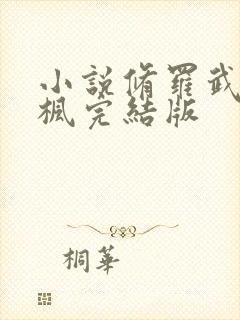 小說脩羅武
楓完結版
桐華